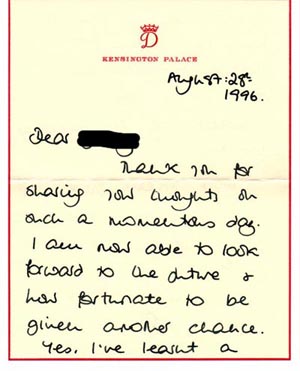 D
KENSINGTON PALACE
August: 28th
1996.
Dear
Thank you for
sharing your thoughts on
such a momentous day.
I am now able to look
forward to the future &
how fortunate to be
given another chance.
Yes, I've learnt a